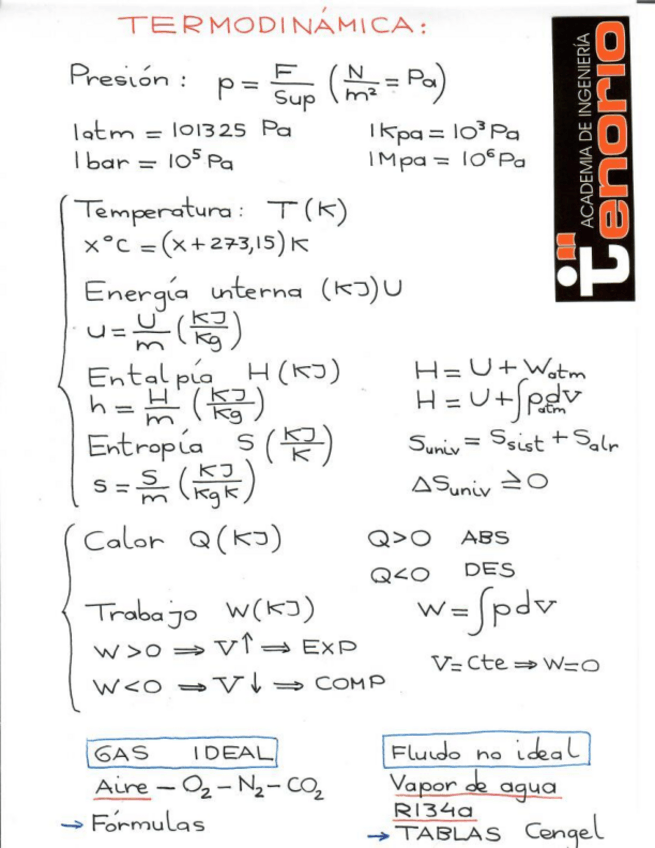 TERMODINÁMICA:
ACADEMIA DE INGENIERÍA
Tenorio
Presión: p = F/Sup (N/m² = Pa)
1atm = 101325 Pa
1Kpa = 10³ Pa
1bar = 10⁵ Pa
1Mpa = 10⁶ Pa
Temperatura: T (K)
x°C = (x+273,15) K
Energía interna (KJ) U
u = U/m (KJ/Kg)
Entalpía H (KJ)
H = U + Watm
h = H/m (KJ/Kg)
H = U + ∫patm dv
Entropía S (KJ/K)
Suniv = Ssist + Salr
s = S/m (KJ/KgK)
ΔSuniv ≥ 0
Calor Q (KJ)
Q>0 ABS
Q<0 DES
Trabajo W (KJ)
W = ∫pdv
W>0 ⇒ V↑ ⇒ EXP
V=Cte ⇒ W=0
W<0 ⇒ V↓ ⇒ COMP
GAS IDEAL
Aire – O₂ – N₂ – CO₂
→ Fórmulas
Fluido no ideal
Vapor de agua
R134a
→ TABLAS Cengel